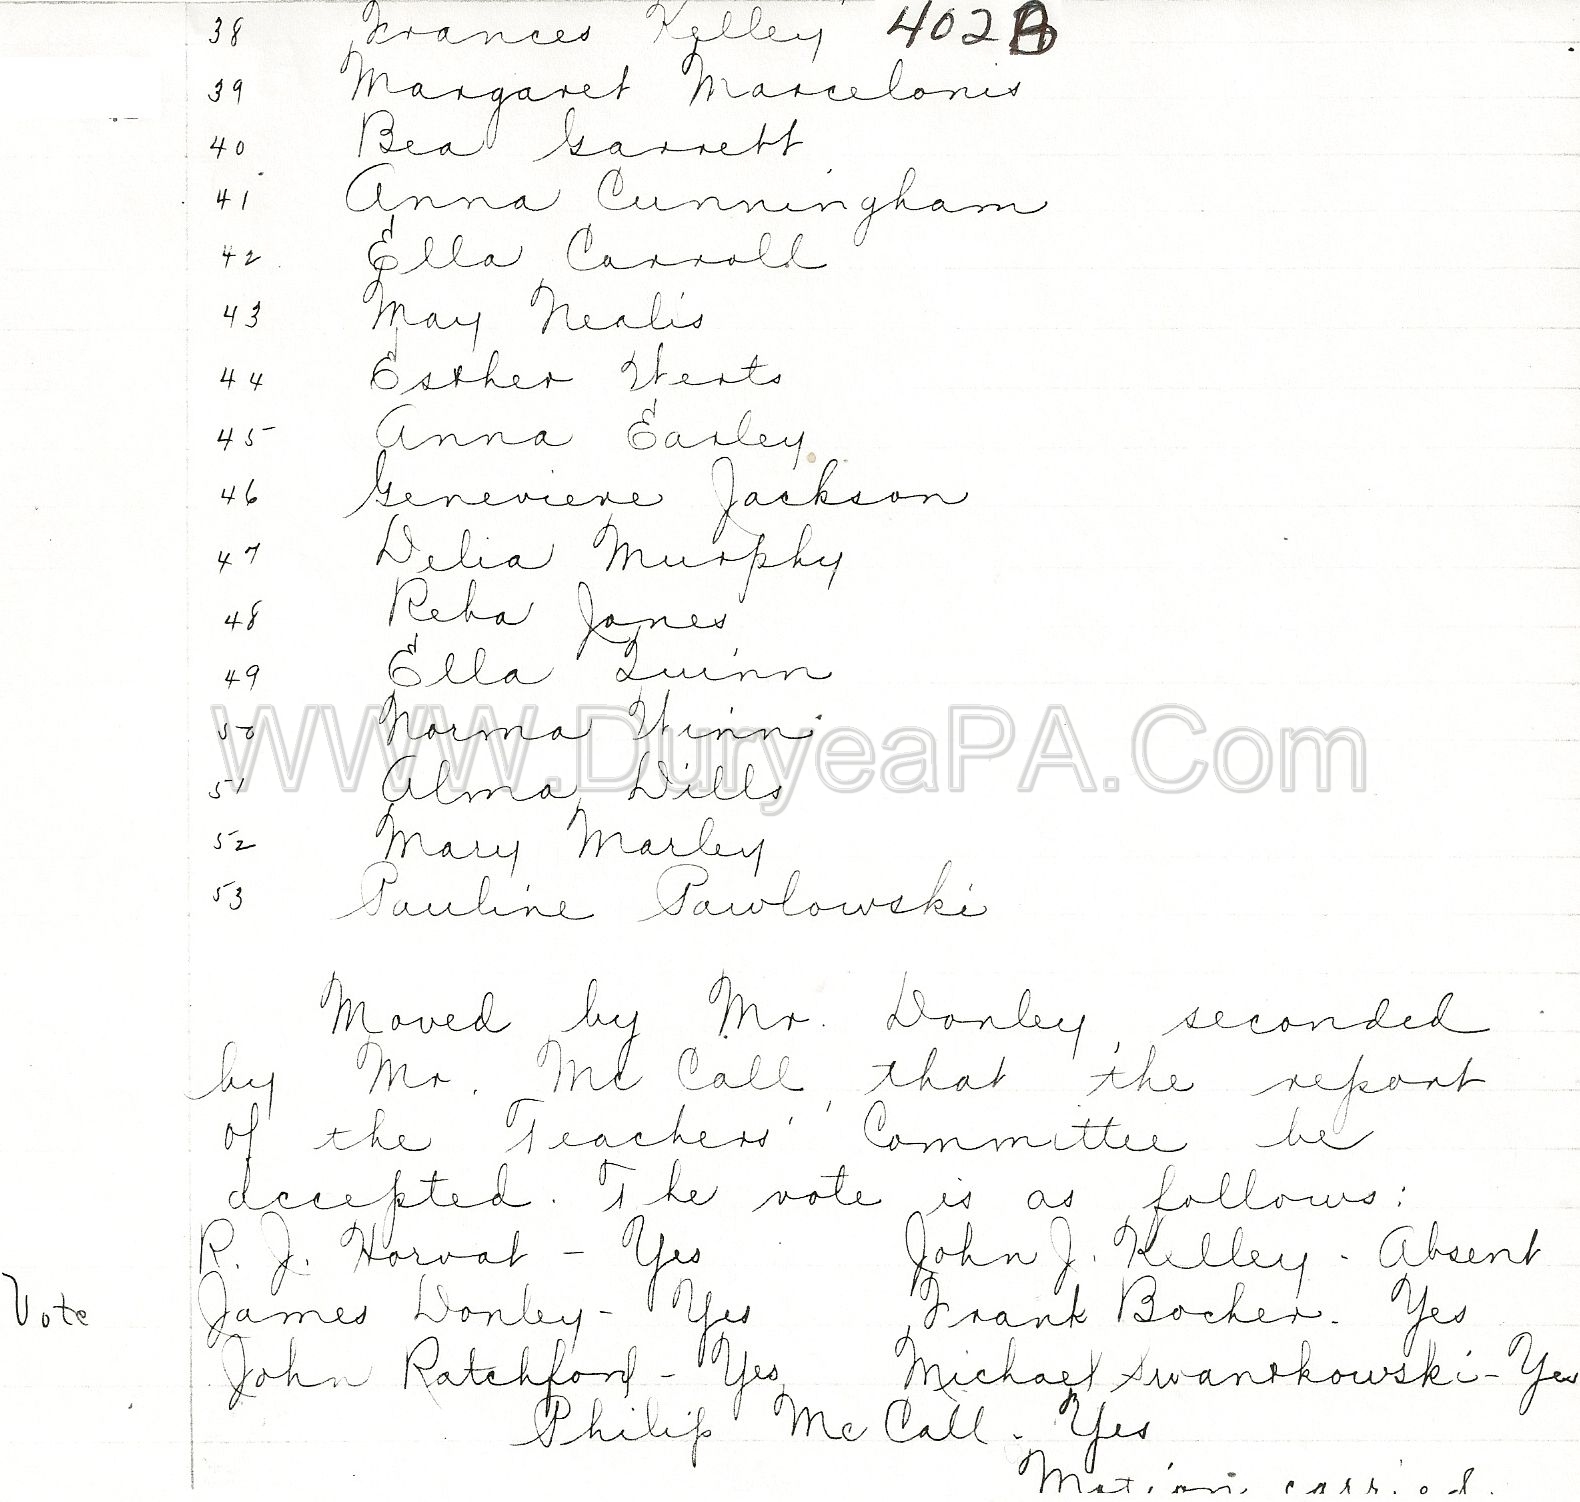 38 Frances Kelley 402A
39 Margaret Marcelonis
40 Bea Garrett
41 Anna Cunningham
42 Ella Carroll
43 May Nealis
44 Esther Werts
45 Anna Earley
46 Genevieve Jackson
47 Delia Murphy
48 Reba Jones
49 Ella Quinn
50 Norma Winn
WWW.DuryeaPA.Com
51 Alma Dills
52 Mary Marley
53 Pauline Pawlowski
Moved by Mr. Donley, seconded
by Mr. Mc Call, that the report
of the Teachers' Committee be
accepted. The vote is as follows:
R. J. Horvat - Yes John J. Kelley - Absent
Vote James Donley - Yes Frank Bocher - Yes
John Ratchford - Yes Michael Swantkowski - Yes
Philip Mc Call - Yes
Motion carried.